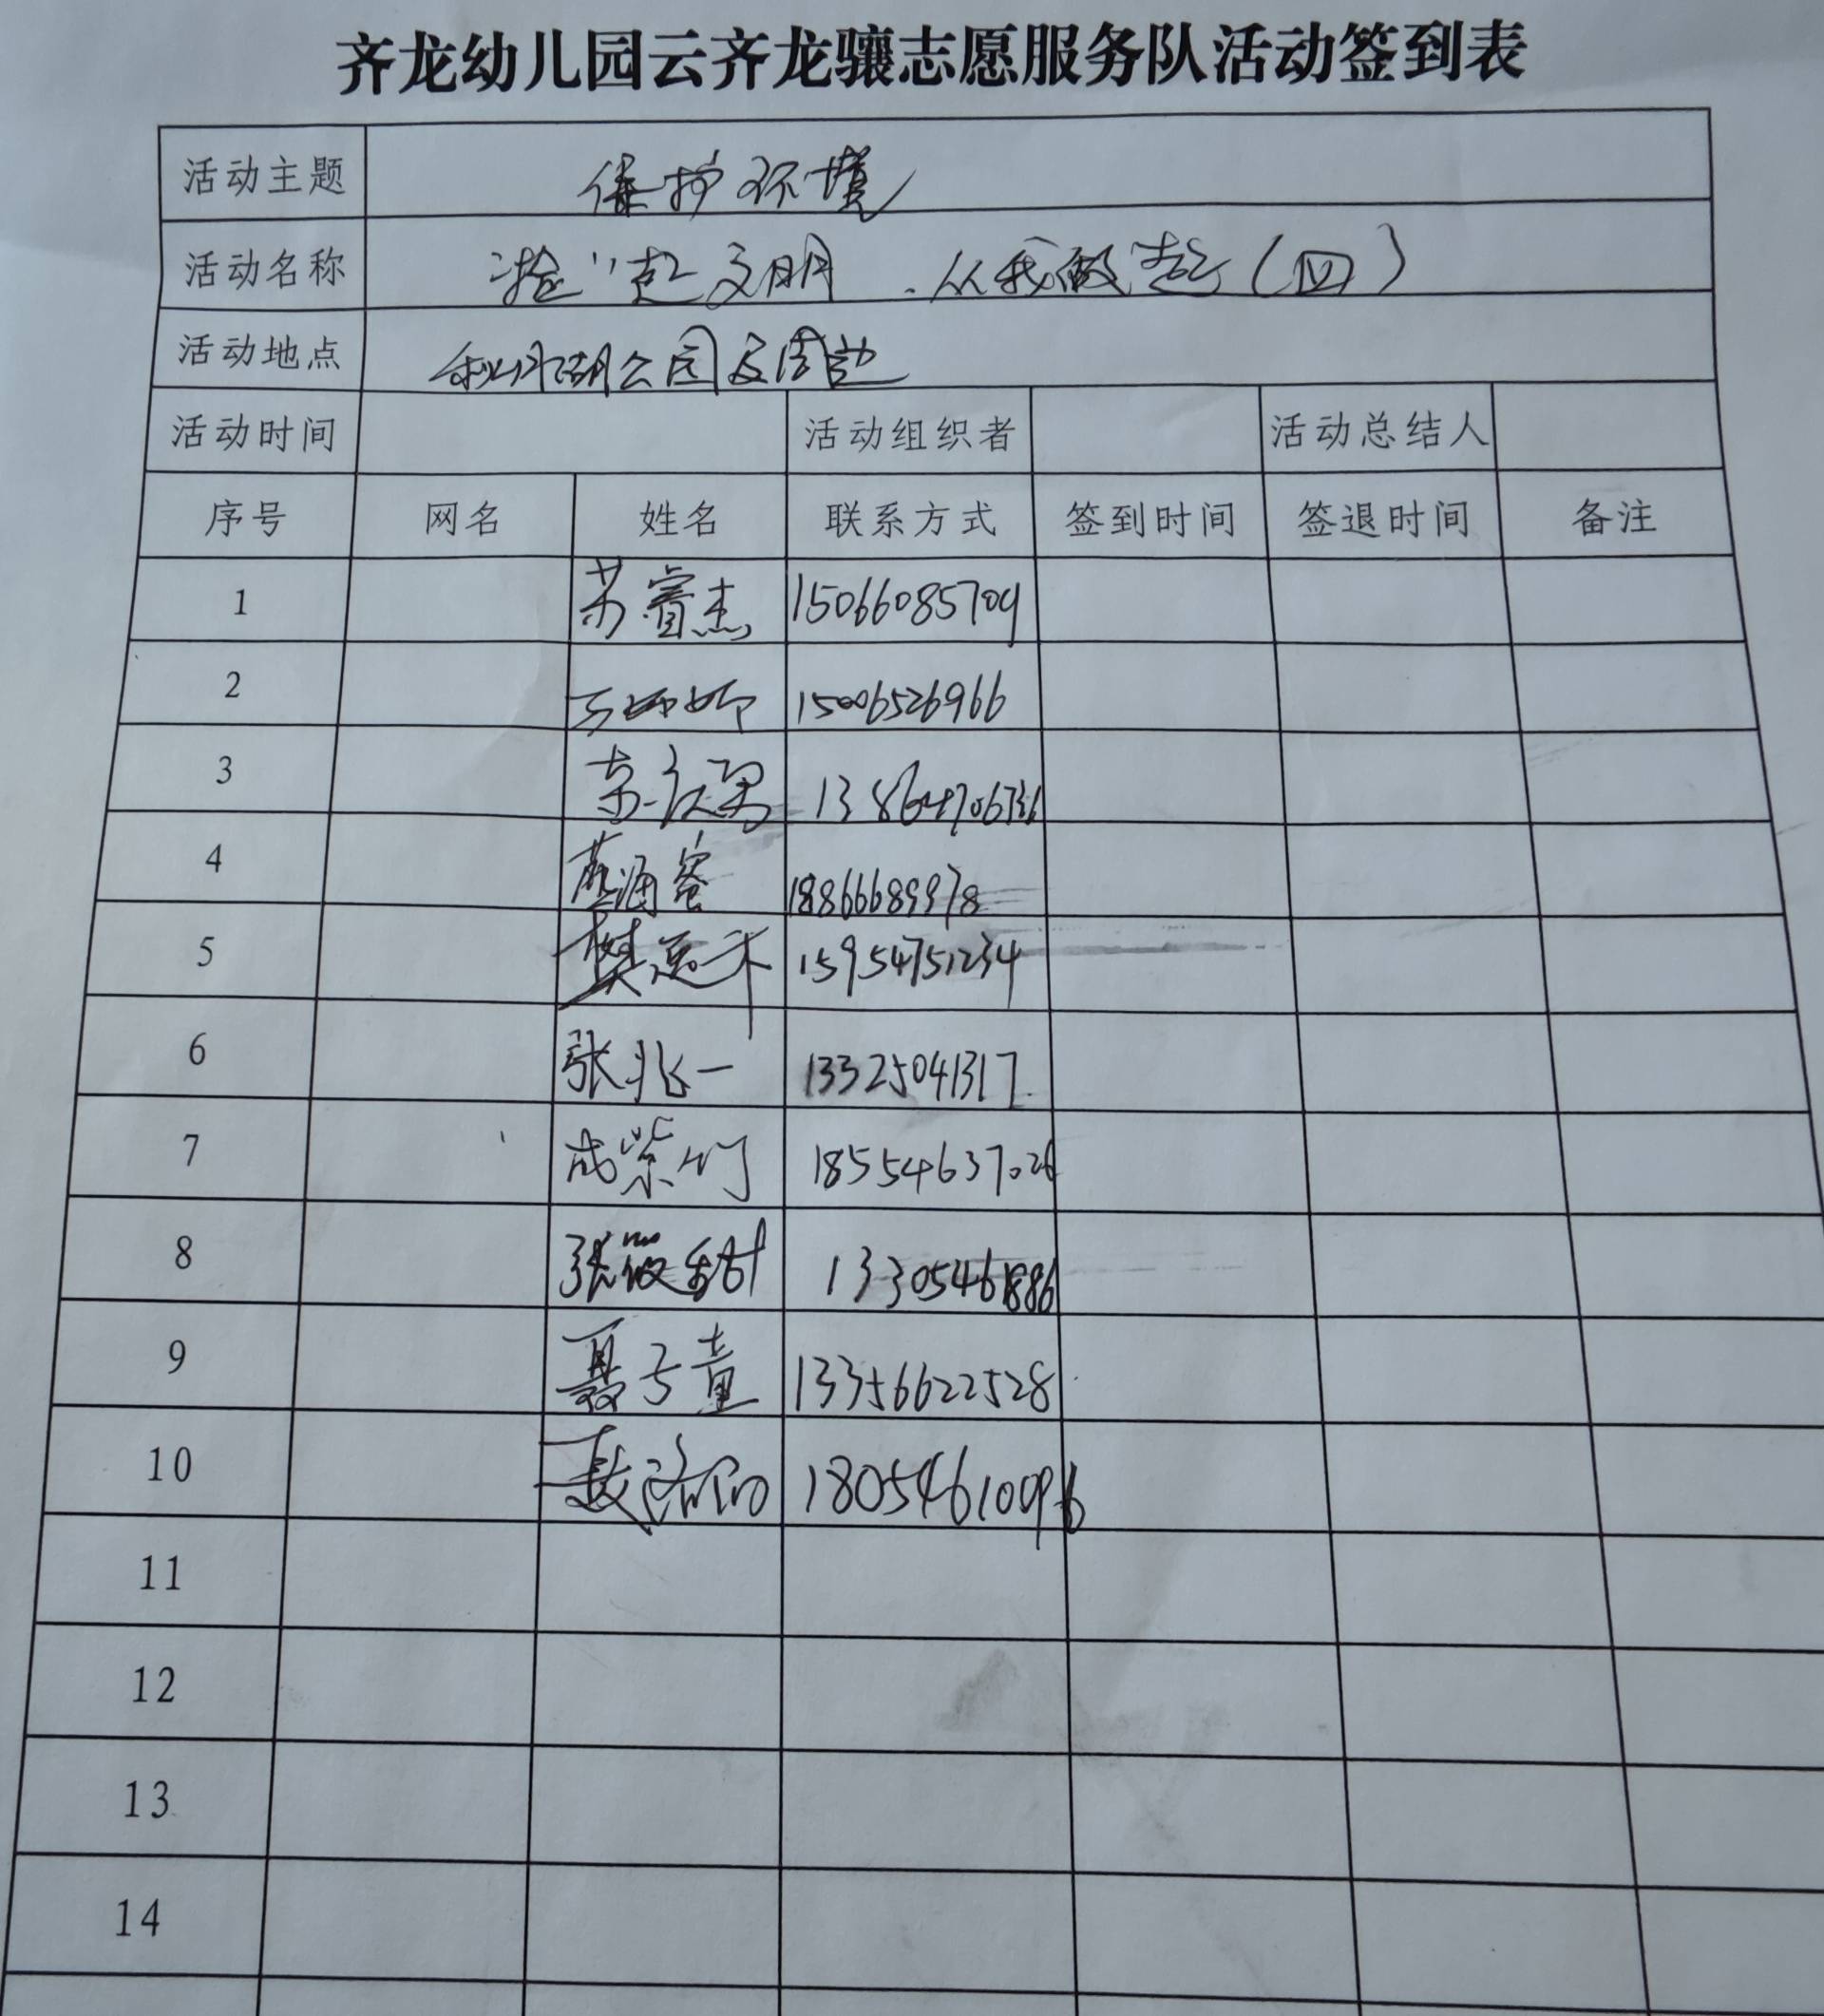 齐龙幼儿园云齐龙骧志愿服务队活动签到表
活动主题 保护环境
活动名称 "捡"起文明 从我做起(四)
活动地点 公园及周边
活动时间 活动组织者 活动总结人
序号 网名 姓名 联系方式 签到时间 签退时间 备注
1 苏睿杰 15066085709
2 15006526966
3 13864706736
4 18866689978
5 樊 15954751234
6 张兆一 13325041317
7 成紫 18554637026
8 张筱 13305461886
9 聂子童 13356622528
10 18054610096
11
12
13
14